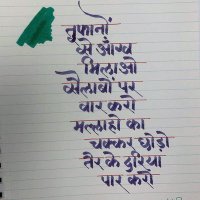 तुफानों
से आंख
मिलाओ
सैलाबों पर
वार करो
मल्लाहो का
चक्कर छोड़ो
तैर के दरिया
पार करो